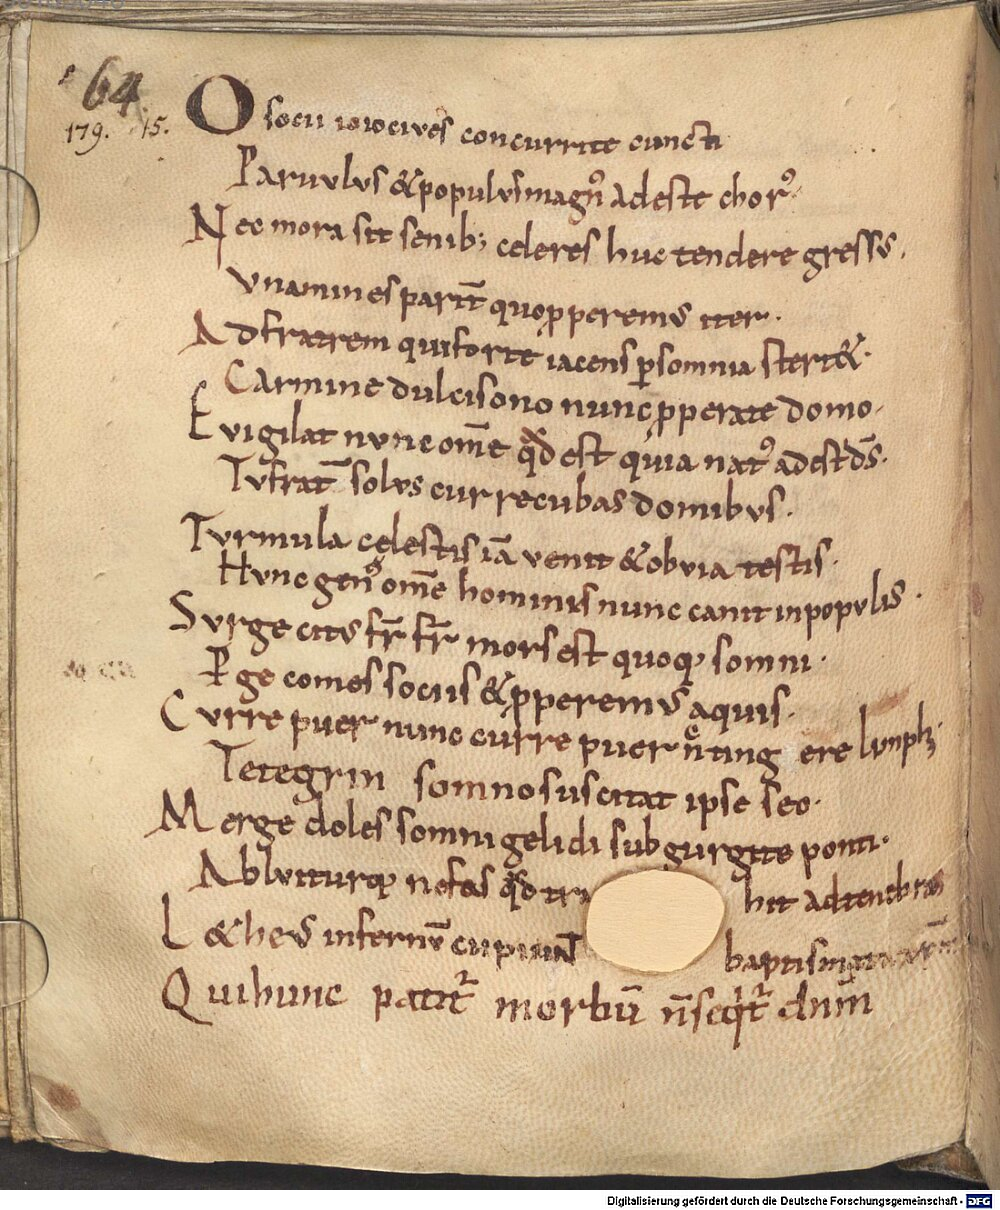 64
179. 15.
O socii io io cives concurrite cuncti
Paruulus & populus magn᾿ adeste chor᾿.
Nec mora sit senib; celeres huc tendere gressus.
Vnamines parit̄ quo ꝓperemus iter.
Ad fratrem qui forte iacens ꝑ somnia stert&.
Carmine dulcisono nunc ꝓperate domo.
Evigilat nunc om̄e qd̄ est quia nat᾿ adest d̄s.
Tu frat̄ solus cur recubas domibus.
Turmula cęlestis iā uenit & obuia testis.
Hunc gen᾿ om̄e hominis nunc canit in populis.
Surge citus fr̄ fr̄ mors est quoq; somni.
Pge comes sociis & ꝓperemus aquis.
Curre puer nunc curre puer ting ere lymph;
Tetegrin somno suscitat ipse seo.
Merge doles somni gelidi sub gurgite ponti.
Abluiturq; nefas qd̄ hit ad tenebras
L&heus infernū baptism
Qui hunc patit᷑ morbū n̄ seq̇t᷑ dn̄m
Digitalisierung gefördert durch die Deutsche Forschungsgemeinschaft - DFG